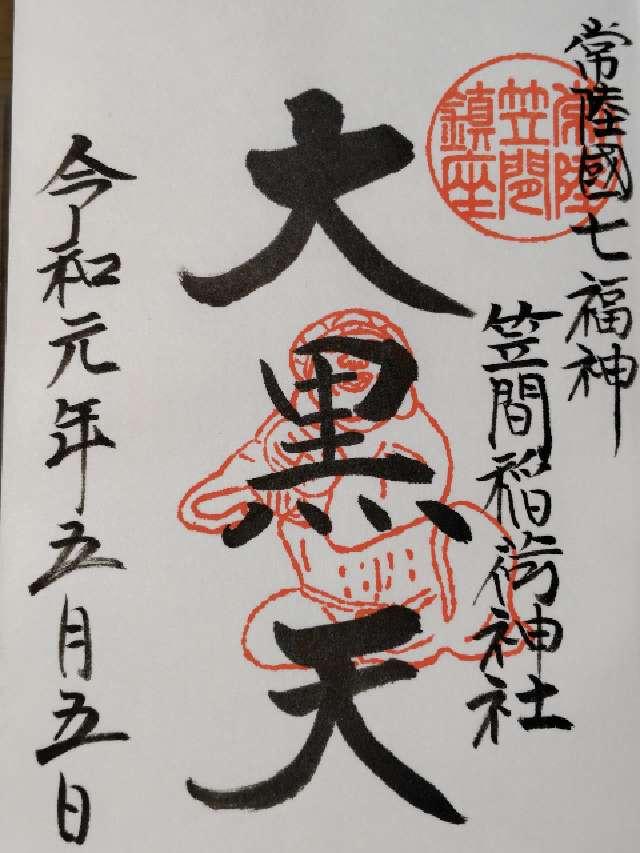 常陸國七福神
常陸
笠間
鎮座
笠間稲荷神社
大黒天
令和元年五月五日